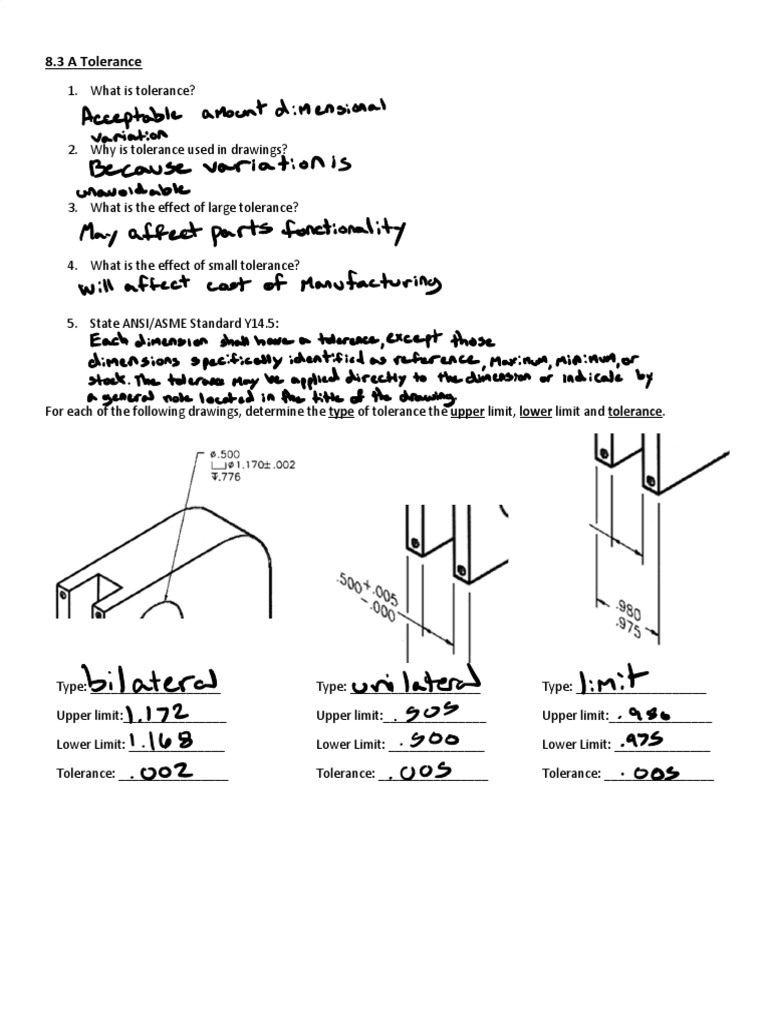 8.3 A Tolerance
1. What is tolerance?
Acceptable amount dimensional
variation
2. Why is tolerance used in drawings?
Because variation is
unavoidable
3. What is the effect of large tolerance?
May affect parts fonctionality
4. What is the effect of small tolerance?
Will affect cost of Manufacturing
5. State ANSI/ASME Standard Y14.5:
Each dimension shall have a tolerance, except those
dimensions specifically identified as reference, Maximum, minimum, or
stock. The tolerance may be applied directly to the dimension or indicate by
a general note located in the title of the drawing.
For each of the following drawings, determine the type of tolerance the upper limit, lower limit and tolerance.
⌀.500
⌴⌀1.170±.002
↧.776
.500 +.005
-.000
.980
.975
Type: bilateral Type: unilateral Type: limit
Upper limit: 1.172 Upper limit: .505 Upper limit: .980
Lower Limit: 1.168 Lower Limit: .500 Lower Limit: .975
Tolerance: .002 Tolerance: .005 Tolerance: .005